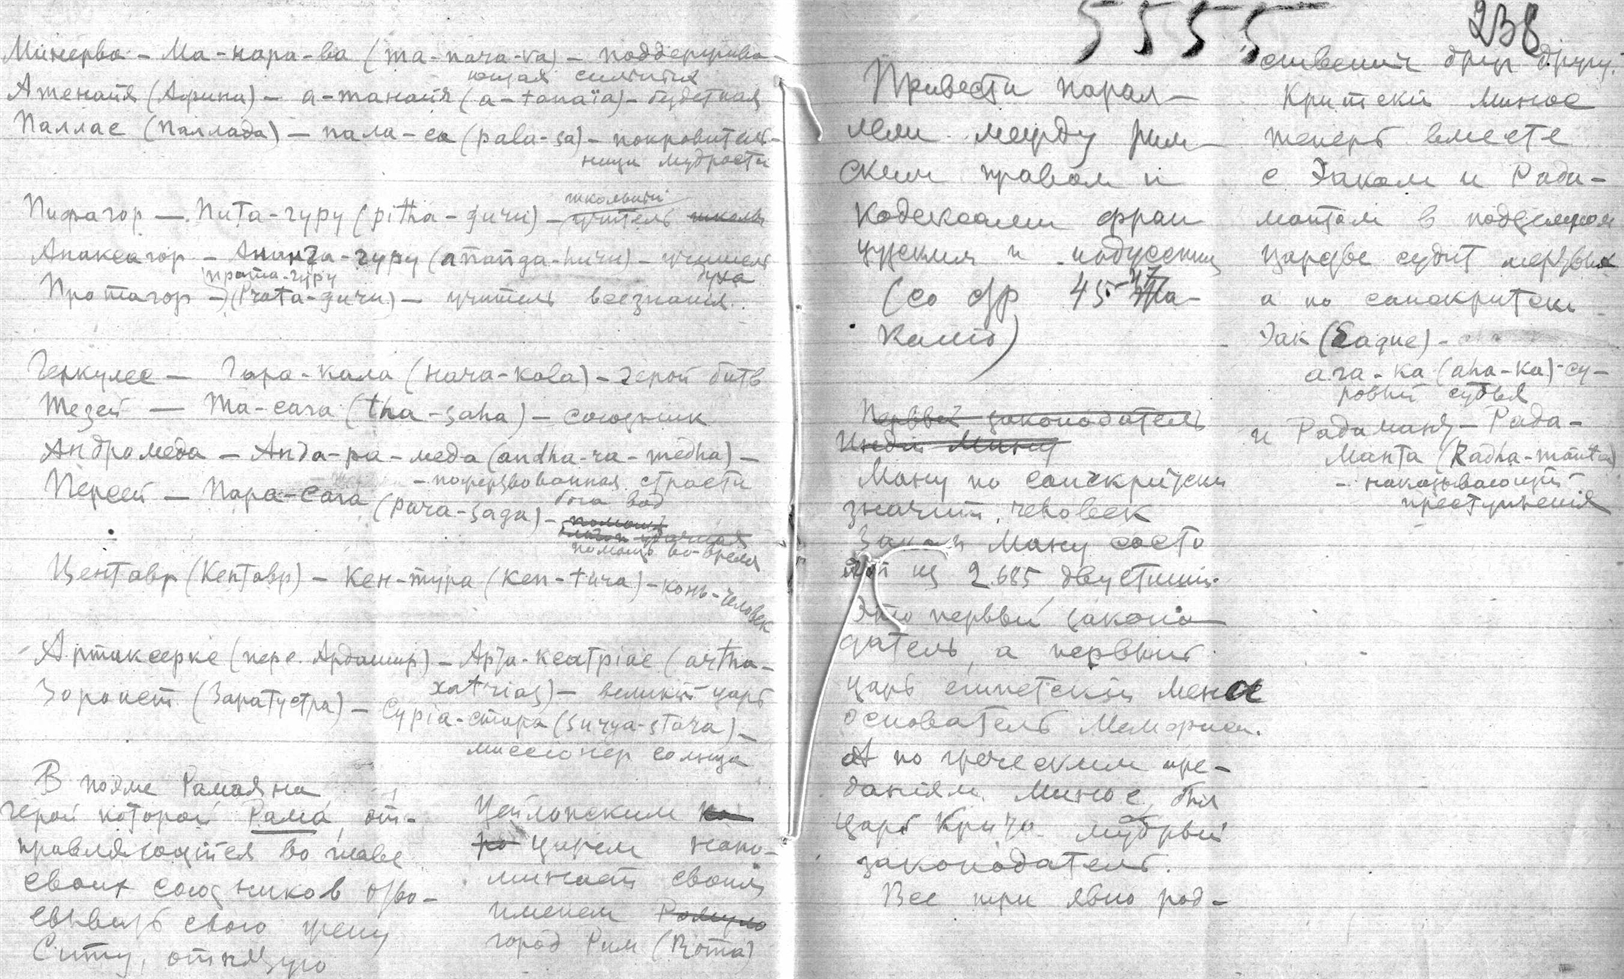 Минерва – Ма-нара-ва (ma-nara-va) – поддержива-
ющая
Атенайя (Афина) – а-танайя (a-tanaïa) – бездетная
Паллас (Паллада) – пала-са (pala-sa) – покровитель-
ница мудрости
школьный
Пифагор – Пита-гуру (pitha-guru) – учитель школы
Анаксагор – Ананда-гуру (ananda-guru) – учитель
духа
прата-гуру
Протагор – (Prata-guru) – учитель всезнанія
Геркулес – Гара-кала (hara-kala) – герой битв
Тезей – Та-сага (tha-saha) – союзник
Андромеда – Анда-ра-меда (andha-ra-medha) –
– пожертвованная страсти
бога вод
Персей – Пара-сага (para-saga) –
помощь во-время
Центавр (Кентавр) – Кен-тура (ken-tura) – конь-человек
Артаксеркс (перс. Ардашир) – Арта-кеатріас (artha-
xatrias) – великій царь
Зороаст (Заратустра) – Суріа-стара (surya-stara) –
миссіонер солнца
В поэме Рамаяна
герой которой Рама, от-
правляющийся во главе
своих союзников отво-
евывать свою жену
Ситу, отнятую
Цейлонским
царем напо-
минает своим
именем Ромула
город Рим (Roma)
5555
238
Привести парал-
лели между рим-
ским правом и
кодексами фран
цузским и индусским
(со стр 45
Первый законодатель
Индіи Ману
Ману по санскритски
значит человек
Закон Ману состо
ит из 2.685 двустиший.
Это первый законо
датель, а первый
царь египетскій Менес
основатель Мемфиса.
А по греческим пре-
даніям Минос, был
царь Крита мудрый
законодатель.
Все три явно род-
ственны друг другу.
Критскій Минос
теперь вместе
с Эаком и Рада-
мантом в подземном
царстве судит мертвых
а по санскритски
Эак (Eaque) –
ага-ка (aha-ka) – су-
ровый судья
и Радамант – Рада-
Манта (Radha-manta)
– наказывающій
преступленія